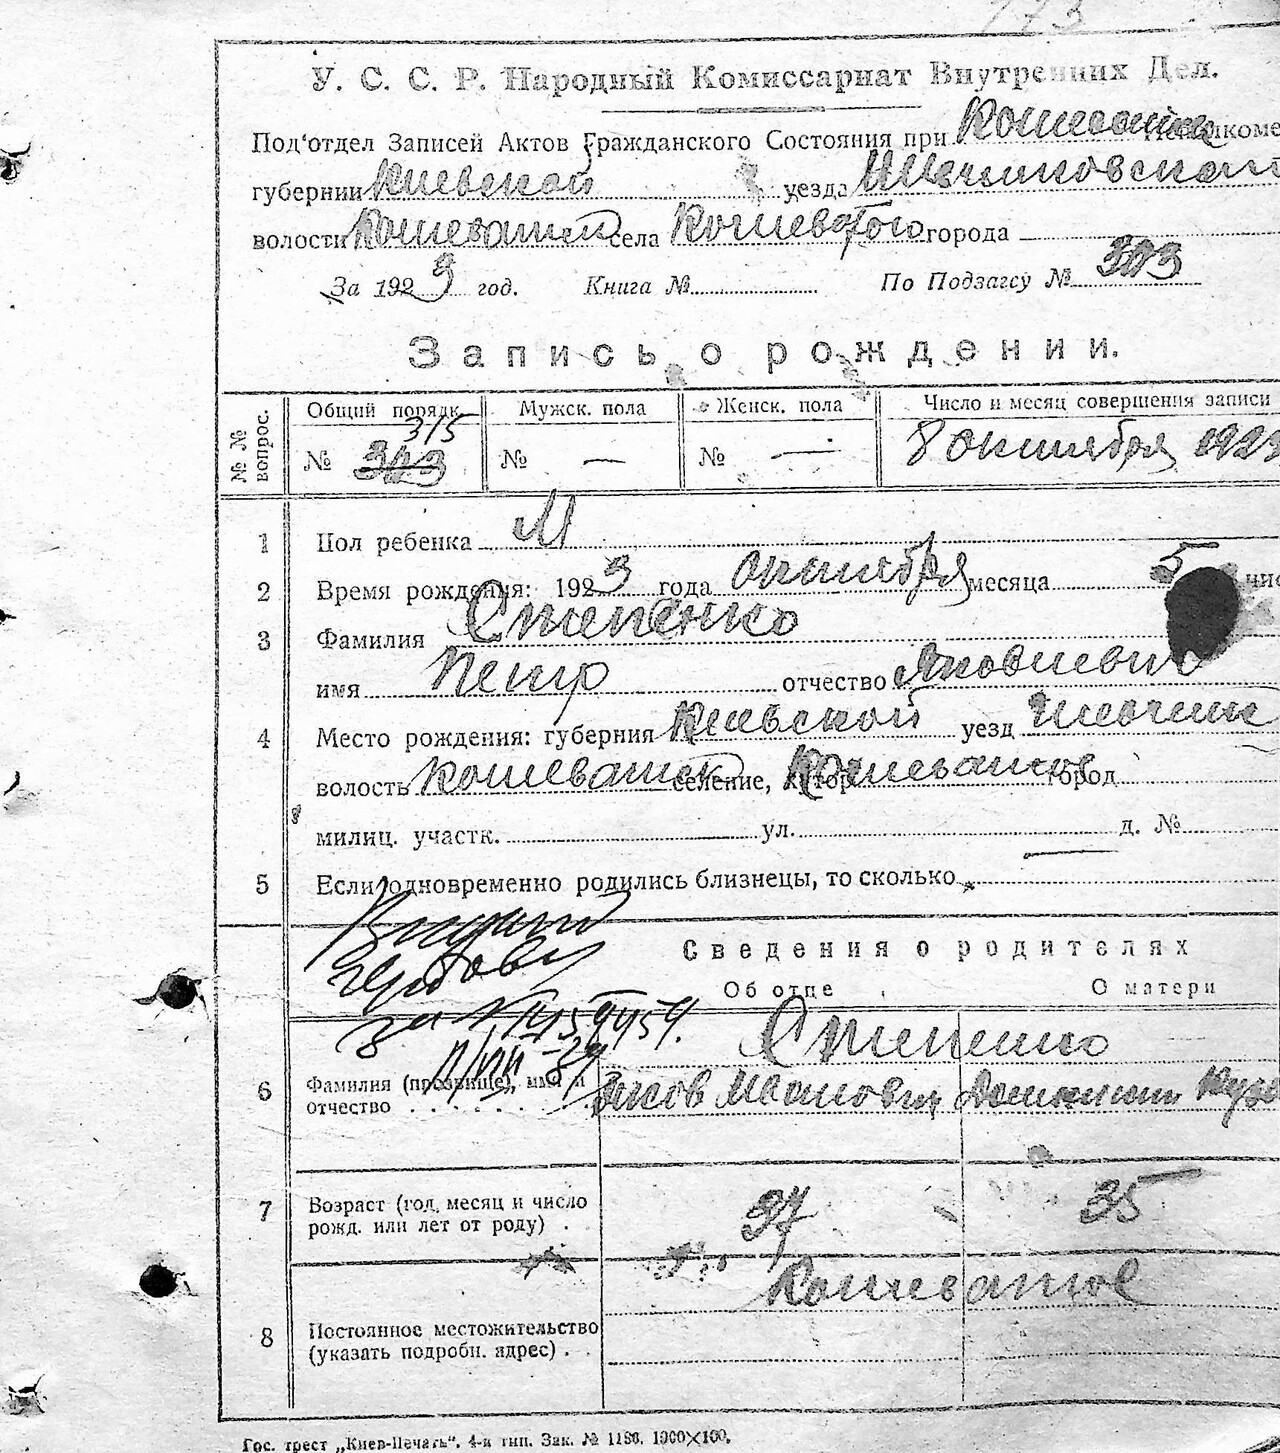 173
У. С. С. Р. Народный Комиссариат Внутренних Дел.
Под'отдел Записей Актов Гражданского Состояния при
губернии Киевской уезда
волости села Кошеватого города
За 1923 год. Книга № По Подзагсу № 303
Запись о рождении.
№ № вопрос. Общий порядк. Мужск. пола Женск. пола Число и месяц совершения записи
315
№ 313 № — № — 8 октября 192
1 Пол ребенка М
2 Время рождения: 1923 года октября месяца 5 чис
3 Фамилия Степенко
имя Петр отчество Яковлевич
4 Место рождения: губерния Киевской уезд
волость Кошеватск селение, хутор Кошеватое город
милиц. участк. ул. д. №
5 Если одновременно родились близнецы, то сколько —
Сведения о родителях
Об отце О матери
Степенко
6 Фамилия (прозвище), имя и отчество Яков Иванович
7 Возраст (год, месяц и число рожд. или лет от роду) 37 35
Кошеватое
8 Постоянное местожительство (указать подробн. адрес)
Гос. трест „Киев-Печать". 4-я тип. Зак. № 1186. 1000×100.